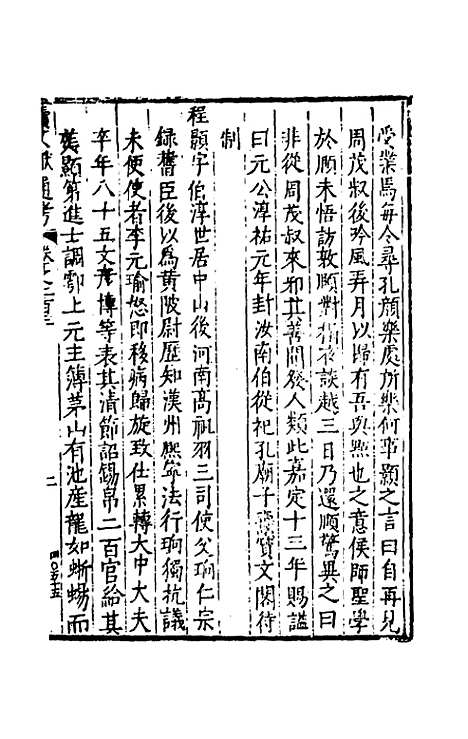 受業焉每令尋孔顏樂處所樂何事顥之言曰自再見
周茂叔後吟風弄月以歸有吾與點也之意侯師聖學
於頤未悟訪敦頤對榻夜談越三日乃還頤驚異之曰
非從周茂叔來耶其善開發人類此嘉定十三年賜謚
曰元公淳祐元年封汝南伯從祀孔廟子燾寶文閣待
制
程顥字伯淳世居中山後河南高祖羽三司使父珦仁宗
錄舊臣後以爲黃陂尉歷知漢州熙寧法行珦獨抗議
未便使者李元瑜怒即移病歸旋致仕累轉大中大夫
卒年八十五文彥博等表其清節詔錫帛二百官給其
葬顥第進士調鄠上元主簿茅山有池產龍如蜥蜴而
續文獻通考
二
四〇五五